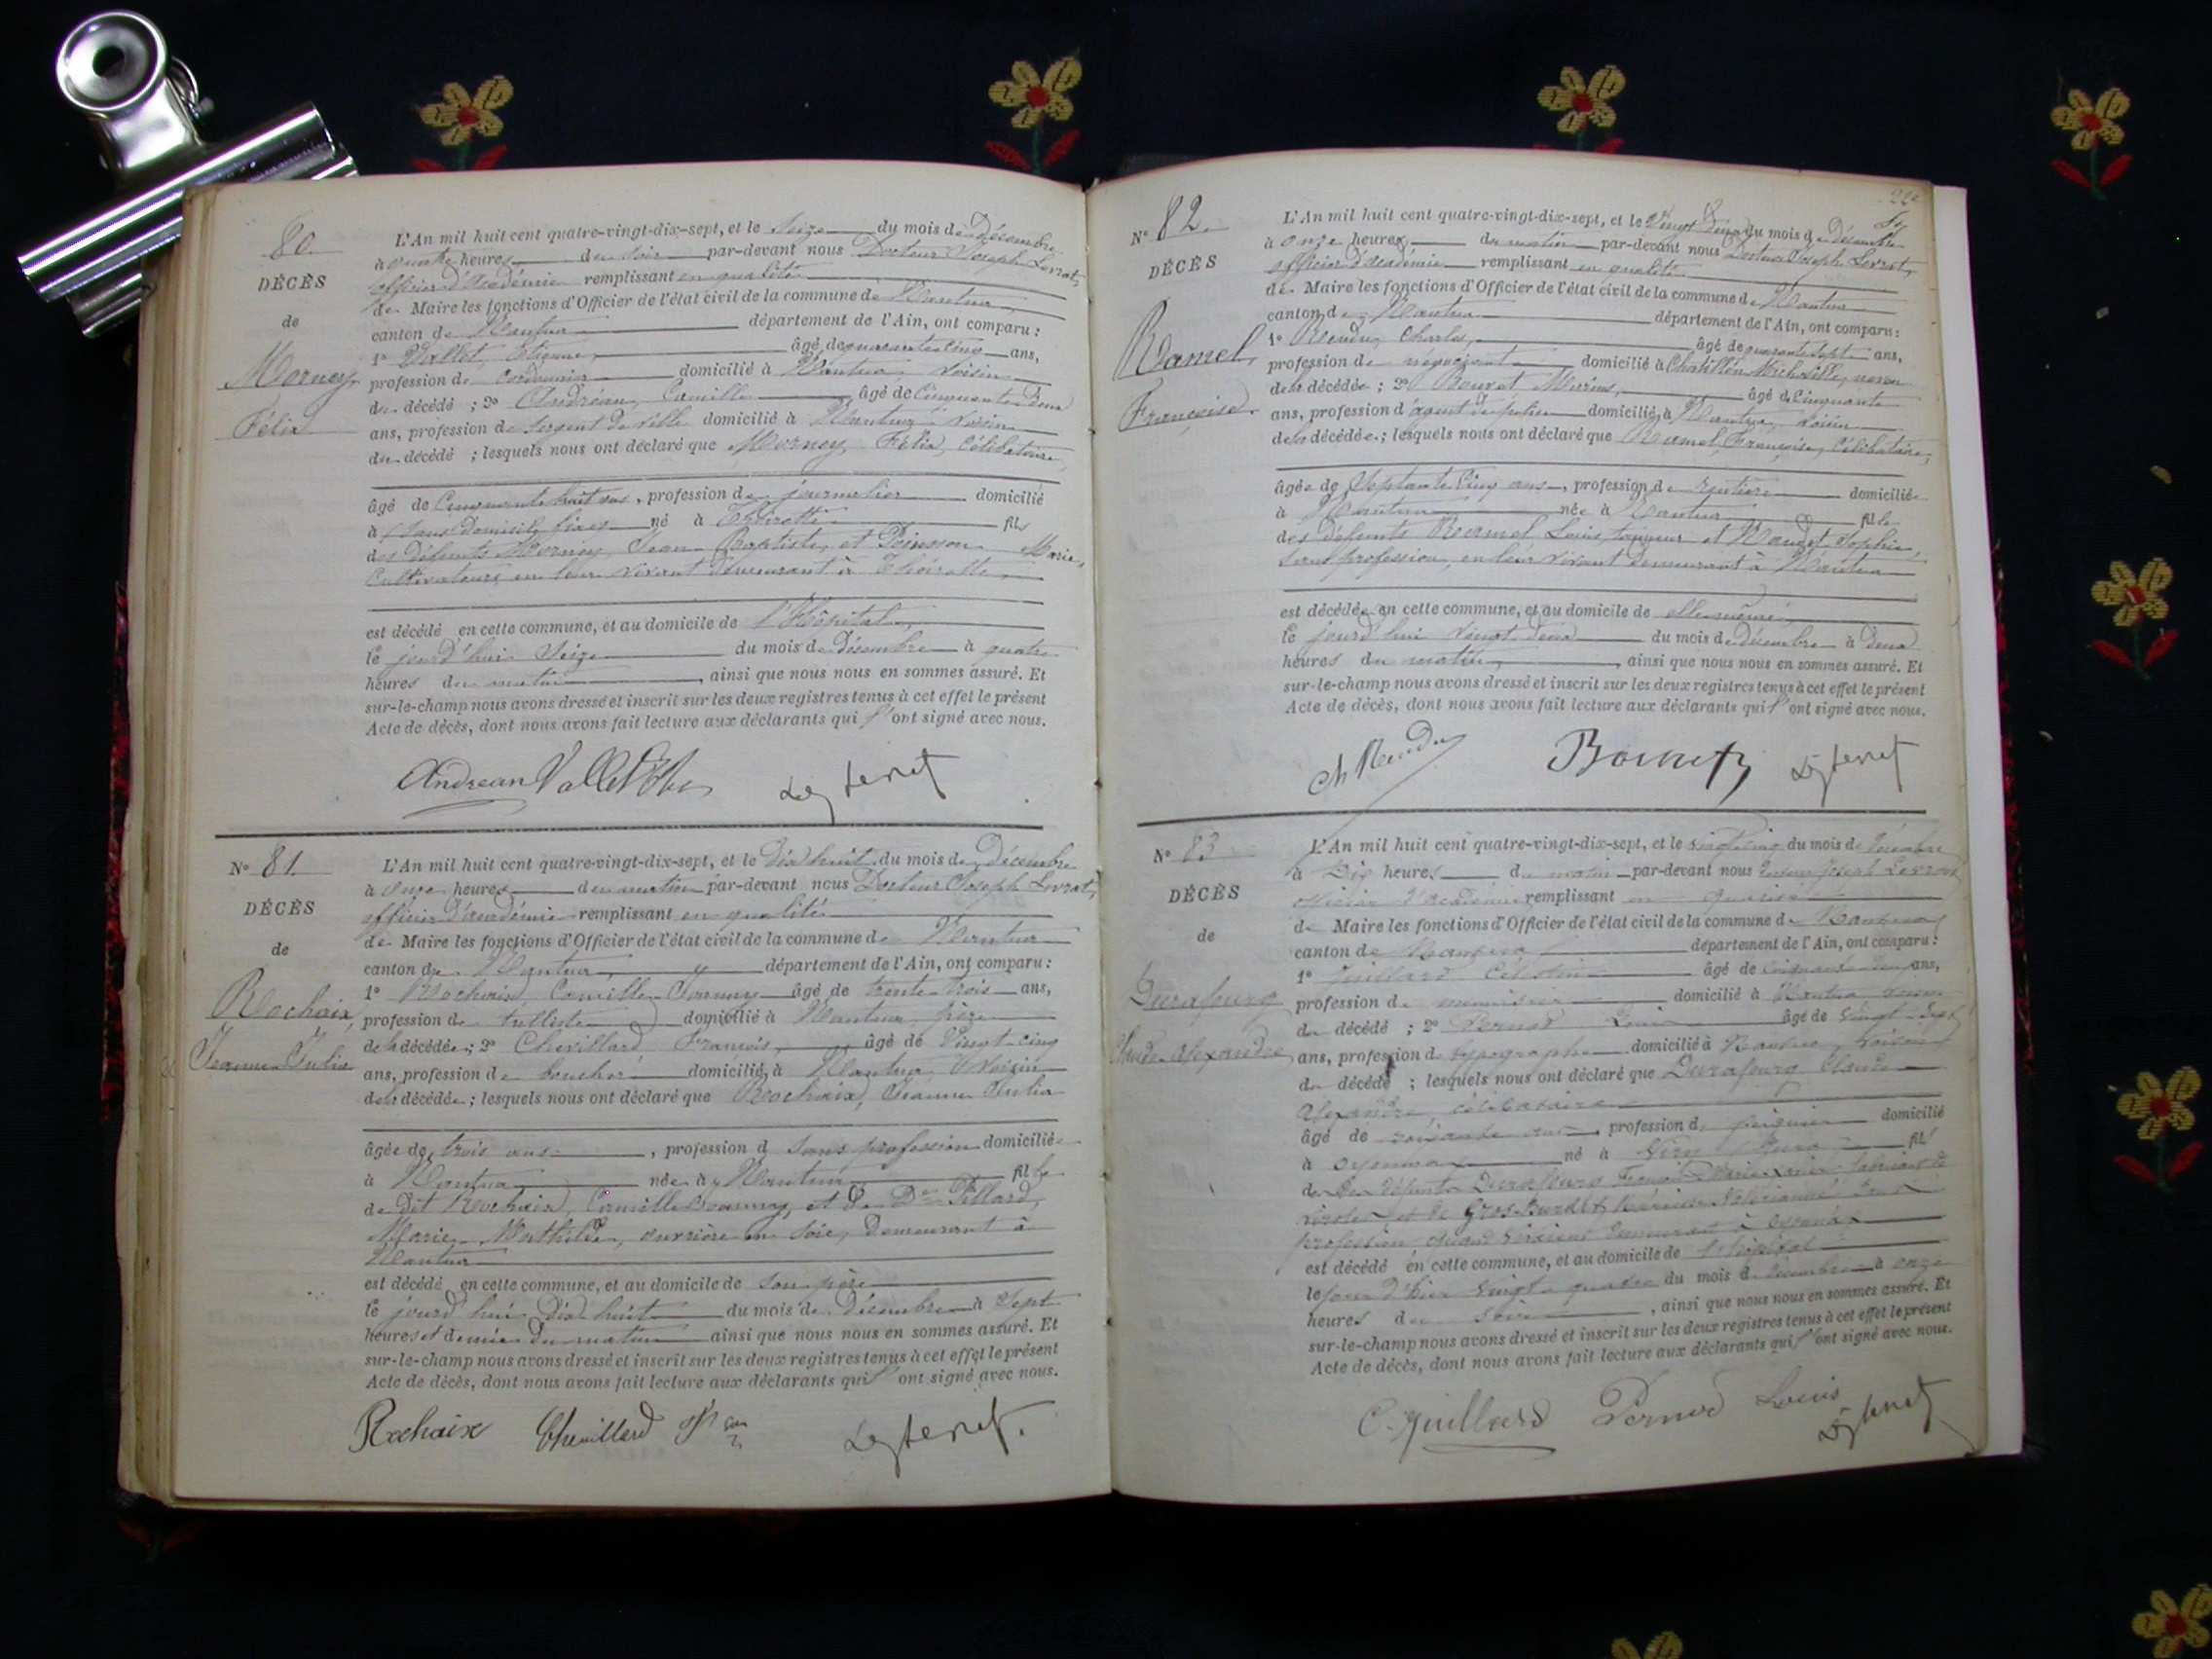 80.
DÉCÈS
de
Morney
Félix
L'An mil huit cent quatre-vingt-dix-sept, et le Seize du mois de Décembre
à quatre heures du soir par-devant nous Docteur Joseph Levrat,
officier d'académie remplissant en qualité
de Maire les fonctions d'Officier de l'état civil de la commune de Nantua
canton de Nantua département de l'Ain, ont comparu :
1º Vallet, Etienne, âgé de quarante cinq ans,
profession de Cordonnier domicilié à Nantua voisin
du décédé ; 2º Andréan, Camille âgé de Cinquante deux
ans, profession de Sergent de Ville domicilié à Nantua voisin
du décédé ; lesquels nous ont déclaré que Morney, Félix, Célibataire,
âgé de Cinquante huit ans, profession de journalier domicilié
à sans domicile fixe né à Thoirette fils
des défunts Morney, Jean Baptiste, et Poinsson Marie,
Cultivateurs, en leur vivant demeurant à Thoirette,
est décédé en cette commune, et au domicile de l'Hôpital,
le jourd'hui Seize du mois de Décembre à quatre
heures du matin, ainsi que nous nous en sommes assuré. Et
sur-le-champ nous avons dressé et inscrit sur les deux registres tenus à cet effet le présent
Acte de décès, dont nous avons fait lecture aux déclarants qui l'ont signé avec nous.
Andrean Vallet
Nº 81.
DÉCÈS
de
Rochaix,
Jeanne Julia
L'An mil huit cent quatre-vingt-dix-sept, et le Dix huit du mois de Décembre
à onze heures du matin par-devant nous Docteur Joseph Levrat,
officier d'académie remplissant en qualité
de Maire les fonctions d'Officier de l'état civil de la commune de Nantua
canton de Nantua, département de l'Ain, ont comparu :
1º Rochaix, Camille âgé de trente-trois ans,
profession de tulliste domicilié à Nantua, père
de la décédée ; 2º Chevillard François, âgé de Vingt-cinq
ans, profession de boucher domicilié à Nantua, voisin
de la décédée ; lesquels nous ont déclaré que Rochaix, Jeanne Julia
âgée de trois ans, profession d sans profession domiciliée
à Nantua née à Nantua fille
de dit Rochaix, Camille et de Dme Pillard,
Marie Mathilde, ouvrière en soie, demeurant à
Nantua
est décédé en cette commune, et au domicile de son père
le jourd'hui Dix huit du mois de Décembre à Sept
heures et demie du matin ainsi que nous nous en sommes assuré. Et
sur-le-champ nous avons dressé et inscrit sur les deux registres tenus à cet effet le présent
Acte de décès, dont nous avons fait lecture aux déclarants qui l'ont signé avec nous.
Rochaix Chevillard
Nº 82.
DÉCÈS
de
Ramel,
Françoise
L'An mil huit cent quatre-vingt-dix-sept, et le Vingt Deux du mois de Décembre
à onze heures du matin par-devant nous Docteur Joseph Levrat,
officier d'académie remplissant en qualité
de Maire les fonctions d'Officier de l'état civil de la commune de Nantua
canton de Nantua département de l'Ain, ont comparu :
1º Charles, âgé de quarante sept ans,
profession de négociant domicilié à Châtillon Michaille, neveu
de la décédée ; 2º âgé de Cinquante
ans, profession d'agent de police domicilié à Nantua, voisin
de la décédée ; lesquels nous ont déclaré que Ramel, Françoise, Célibataire,
âgée de Septante Cinq ans, profession de rentière domiciliée
à Nantua née à Nantua fille
des défunts Ramel, Louis, tanneur et Sophie,
sans profession, en leur vivant demeurant à Nantua
est décédée en cette commune, et au domicile de elle-même,
le jourd'hui vingt deux du mois de décembre à deux
heures du matin, ainsi que nous nous en sommes assuré. Et
sur-le-champ nous avons dressé et inscrit sur les deux registres tenus à cet effet le présent
Acte de décès, dont nous avons fait lecture aux déclarants qui l'ont signé avec nous.
Nº 83
DÉCÈS
de
Durafourg
Claude Alexandre
L'An mil huit cent quatre-vingt-dix-sept, et le vingt cinq du mois de Décembre
à Dix heures du matin par-devant nous Docteur Joseph Levrat
officier d'académie remplissant en qualité
de Maire les fonctions d'Officier de l'état civil de la commune de Nantua
canton de Nantua département de l'Ain, ont comparu :
1º Juillard Célestin âgé de cinquante deux ans,
profession de menuisier domicilié à Nantua
du décédé ; 2º Pernod Louis âgé de vingt-sept
ans, profession de typographe domicilié à Nantua, voisin
du décédé ; lesquels nous ont déclaré que Durafourg Claude
Alexandre, célibataire
âgé de soixante ans, profession de peignier domicilié
à Oyonnax né à Viry Jura fils
de des défunts Durafourg
et de Gros-Burdet,
profession quand vivaient demeurant à Oyonnax
est décédé en cette commune, et au domicile de l'hôpital
le jour d'hier vingt quatre du mois de décembre à onze
heures du soir, ainsi que nous nous en sommes assuré. Et
sur-le-champ nous avons dressé et inscrit sur les deux registres tenus à cet effet le présent
Acte de décès, dont nous avons fait lecture aux déclarants qui l'ont signé avec nous.
C. Juillard Pernod Louis